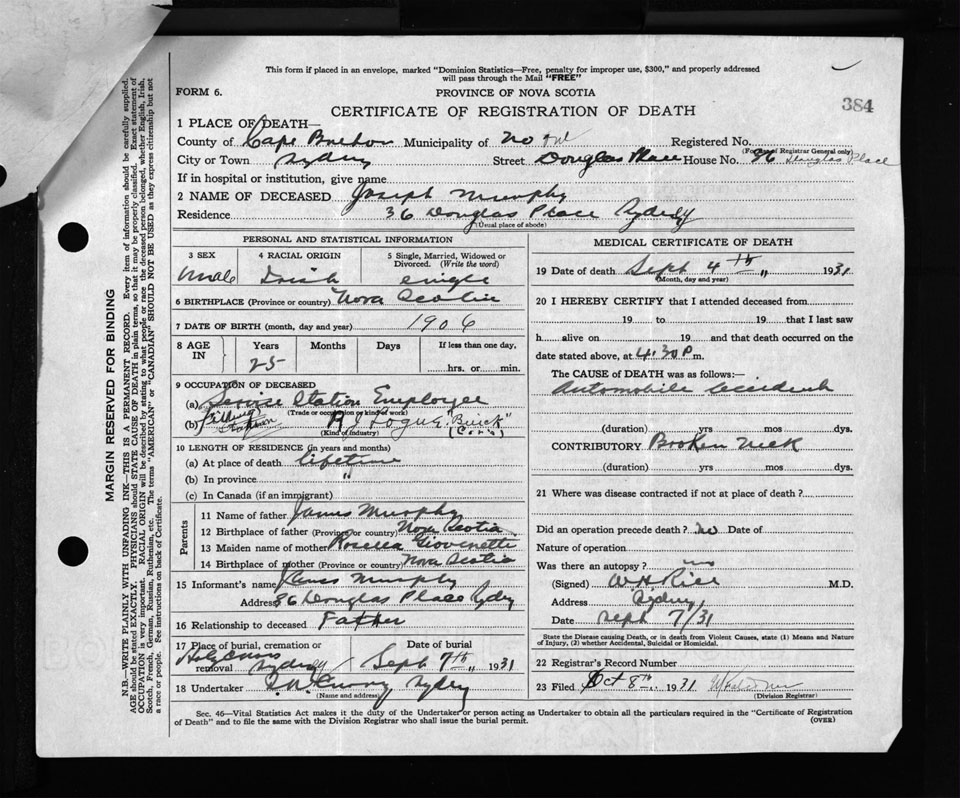 This form if placed in an envelope, marked "Dominion Statistics—Free, penalty for improper use, $300," and properly addressed
will pass through the Mail "FREE"
FORM 6.
PROVINCE OF NOVA SCOTIA
384
CERTIFICATE OF REGISTRATION OF DEATH
1 PLACE OF DEATH—
County of Cape Breton Municipality of No Registered No.
(For use of Registrar General only)
City or Town Sydney Street Douglas Place House No. 36 Douglas Place
If in hospital or institution, give name
2 NAME OF DECEASED Joseph Murphy
Residence 36 Douglas Place Sydney
(Usual place of abode)
PERSONAL AND STATISTICAL INFORMATION
3 SEX 4 RACIAL ORIGIN 5 Single, Married, Widowed or Divorced. (Write the word)
Male Irish single
6 BIRTHPLACE (Province or country) Nova Scotia
7 DATE OF BIRTH (month, day and year) 1906
8 AGE IN Years Months Days If less than one day,
25 hrs. or min.
9 OCCUPATION OF DECEASED
(a) Service Station Employee
(Trade or occupation or kind of work)
(b) filling station A J Logue "Buick"
(Kind of industry) (Cars)
10 LENGTH OF RESIDENCE (in years and months)
(a) At place of death lifetime
(b) In province "
(c) In Canada (if an immigrant)
Parents
11 Name of father James Murphy
12 Birthplace of father (Province or country) Nova Scotia
13 Maiden name of mother Rosella Giovenetti
14 Birthplace of mother (Province or country) Nova Scotia
15 Informant's name James Murphy
Address 36 Douglas Place Sydney
16 Relationship to deceased Father
17 Place of burial, cremation or Date of burial
removal Holy Cross Sydney Sept 7th, 1931
18 Undertaker Sydney
(Name and address)
MEDICAL CERTIFICATE OF DEATH
19 Date of death Sept 4th " 1931
(Month, day and year)
20 I HEREBY CERTIFY that I attended deceased from
19 to 19 that I last saw
h alive on 19 and that death occurred on the
date stated above, at 4.30 P m.
The CAUSE of DEATH was as follows:—
Automobile Accident
(duration) yrs mos dys.
CONTRIBUTORY Broken neck
(duration) yrs mos dys.
21 Where was disease contracted if not at place of death?
Did an operation precede death? no Date of
Nature of operation
Was there an autopsy? no
(Signed) W H Rice M.D.
Address Sydney
Date Sept 7/31
State the Disease causing Death, or in death from Violent Causes, state (1) Means and Nature
of Injury, (2) whether Accidental, Suicidal or Homicidal.
22 Registrar's Record Number
23 Filed Oct 8th 1931
(Division Registrar)
Sec. 46—Vital Statistics Act makes it the duty of the Undertaker or person acting as Undertaker to obtain all the particulars required in the "Certificate of Registration
of Death" and to file the same with the Division Registrar who shall issue the burial permit.
(OVER)
MARGIN RESERVED FOR BINDING
N.B.—WRITE PLAINLY WITH UNFADING INK—THIS IS A PERMANENT RECORD. Every item of information should be carefully supplied.
AGE should be stated EXACTLY. PHYSICIANS should STATE CAUSE OF DEATH in plain terms, so that it may be properly classified. Exact statement of
OCCUPATION is very important. RACIAL ORIGIN will be described by stating to what people or race the deceased person belonged, whether English, Irish,
Scotch, French, German, Russian, Ruthenian, etc. The terms "AMERICAN" or "CANADIAN" SHOULD NOT BE USED as they express citizenship but not
a race or people. See instructions on back of Certificate.